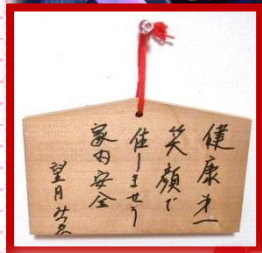 健康第一
笑顔で
佳しませう
家内安全
望月